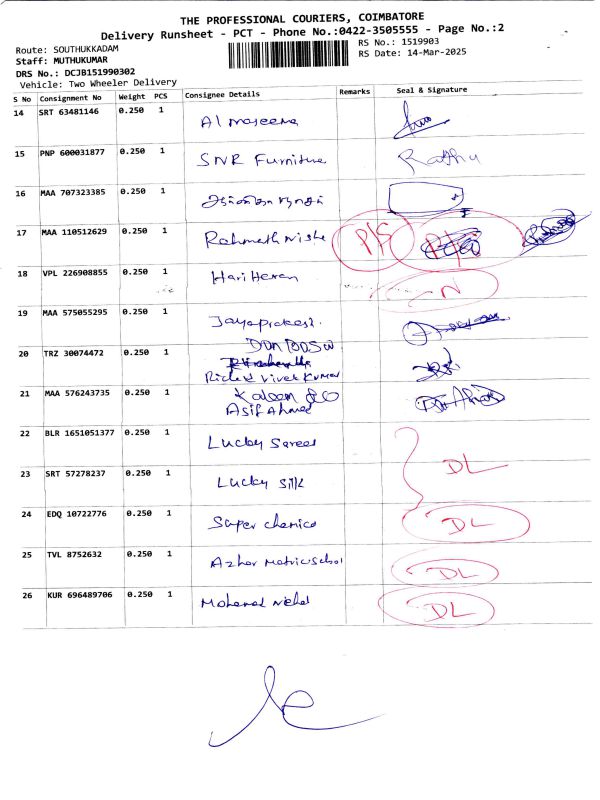 THE PROFESSIONAL COURIERS, COIMBATORE
Delivery Runsheet - PCT - Phone No.:0422-3505555 - Page No.:2
Route: SOUTHUKKADAM
RS No.: 1519903
Staff: MUTHUKUMAR
RS Date: 14-Mar-2025
DRS No.: DCJB151990302
Vehicle: Two Wheeler Delivery
S No Consignment No Weight PCS Consignee Details Remarks Seal & Signature
14 SRT 63481146 0.250 1 Al maseera
15 PNP 600031877 0.250 1 SNR Furniture Radhu
16 MAA 707323385 0.250 1
17 MAA 110512629 0.250 1 Rahmath Nisha P/S P/S
18 VPL 226908855 0.250 1 Hari Haran N
19 MAA 575055295 0.250 1 Jayaprakash
20 TRZ 30074472 0.250 1 DON BOSCO
Richek Vivek Kumar
21 MAA 576243735 0.250 1 Kaleem & CO
Asif Ahmed
22 BLR 1651051377 0.250 1 Lucky Sarees
23 SRT 57278237 0.250 1 Lucky Silk DL
24 EDQ 10722776 0.250 1 Super chemics DL
25 TVL 8752632 0.250 1 Azhar Matric School DL
26 KUR 696489706 0.250 1 Mohamed Nehal DL